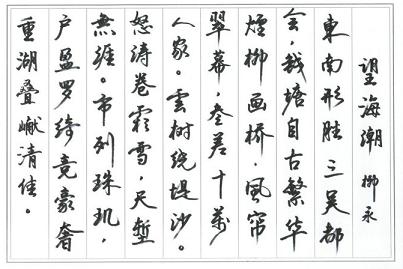 望海潮 柳永
東南形胜三吴都
会,钱塘自古繁华
烟柳画桥,風帘
翠幕,叁差十萬
人家。雲树绕堤沙。
怒涛卷霜雪,天堑
無涯。市列珠玑,
户盈罗绮竞豪奢
重湖叠巘清佳。